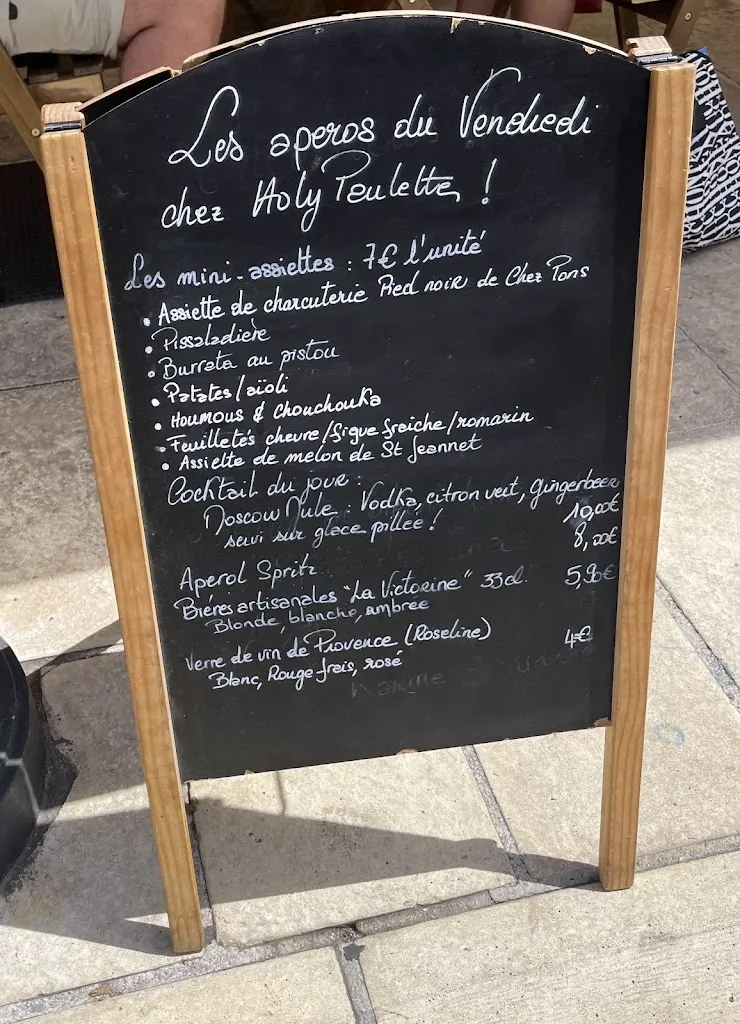 Les aperos du Vendredi
chez Holy Peulette !
Les mini-assiettes : 7€ l'unité
• Assiette de charcuterie Pied noir de Chez Pons
• Pissaladière
• Burrata au pistou
• Patates/aïoli
• Houmous & chouchouka
• Feuilletés chevre/figue fraiche/romarin
• Assiette de melon de St Jeannet
Cocktail du jour :
Moscow Mule : Vodka, citron vert, gingerbeer
servi sur glace pillée ! 10,00€
Aperol Spritz 8,00€
Bières artisanales "La Victorine" 33cl. 5,90€
Blonde, blanche, ambree
Verre de vin de Provence (Roseline) 4€
Blanc, Rouge frais, rosé